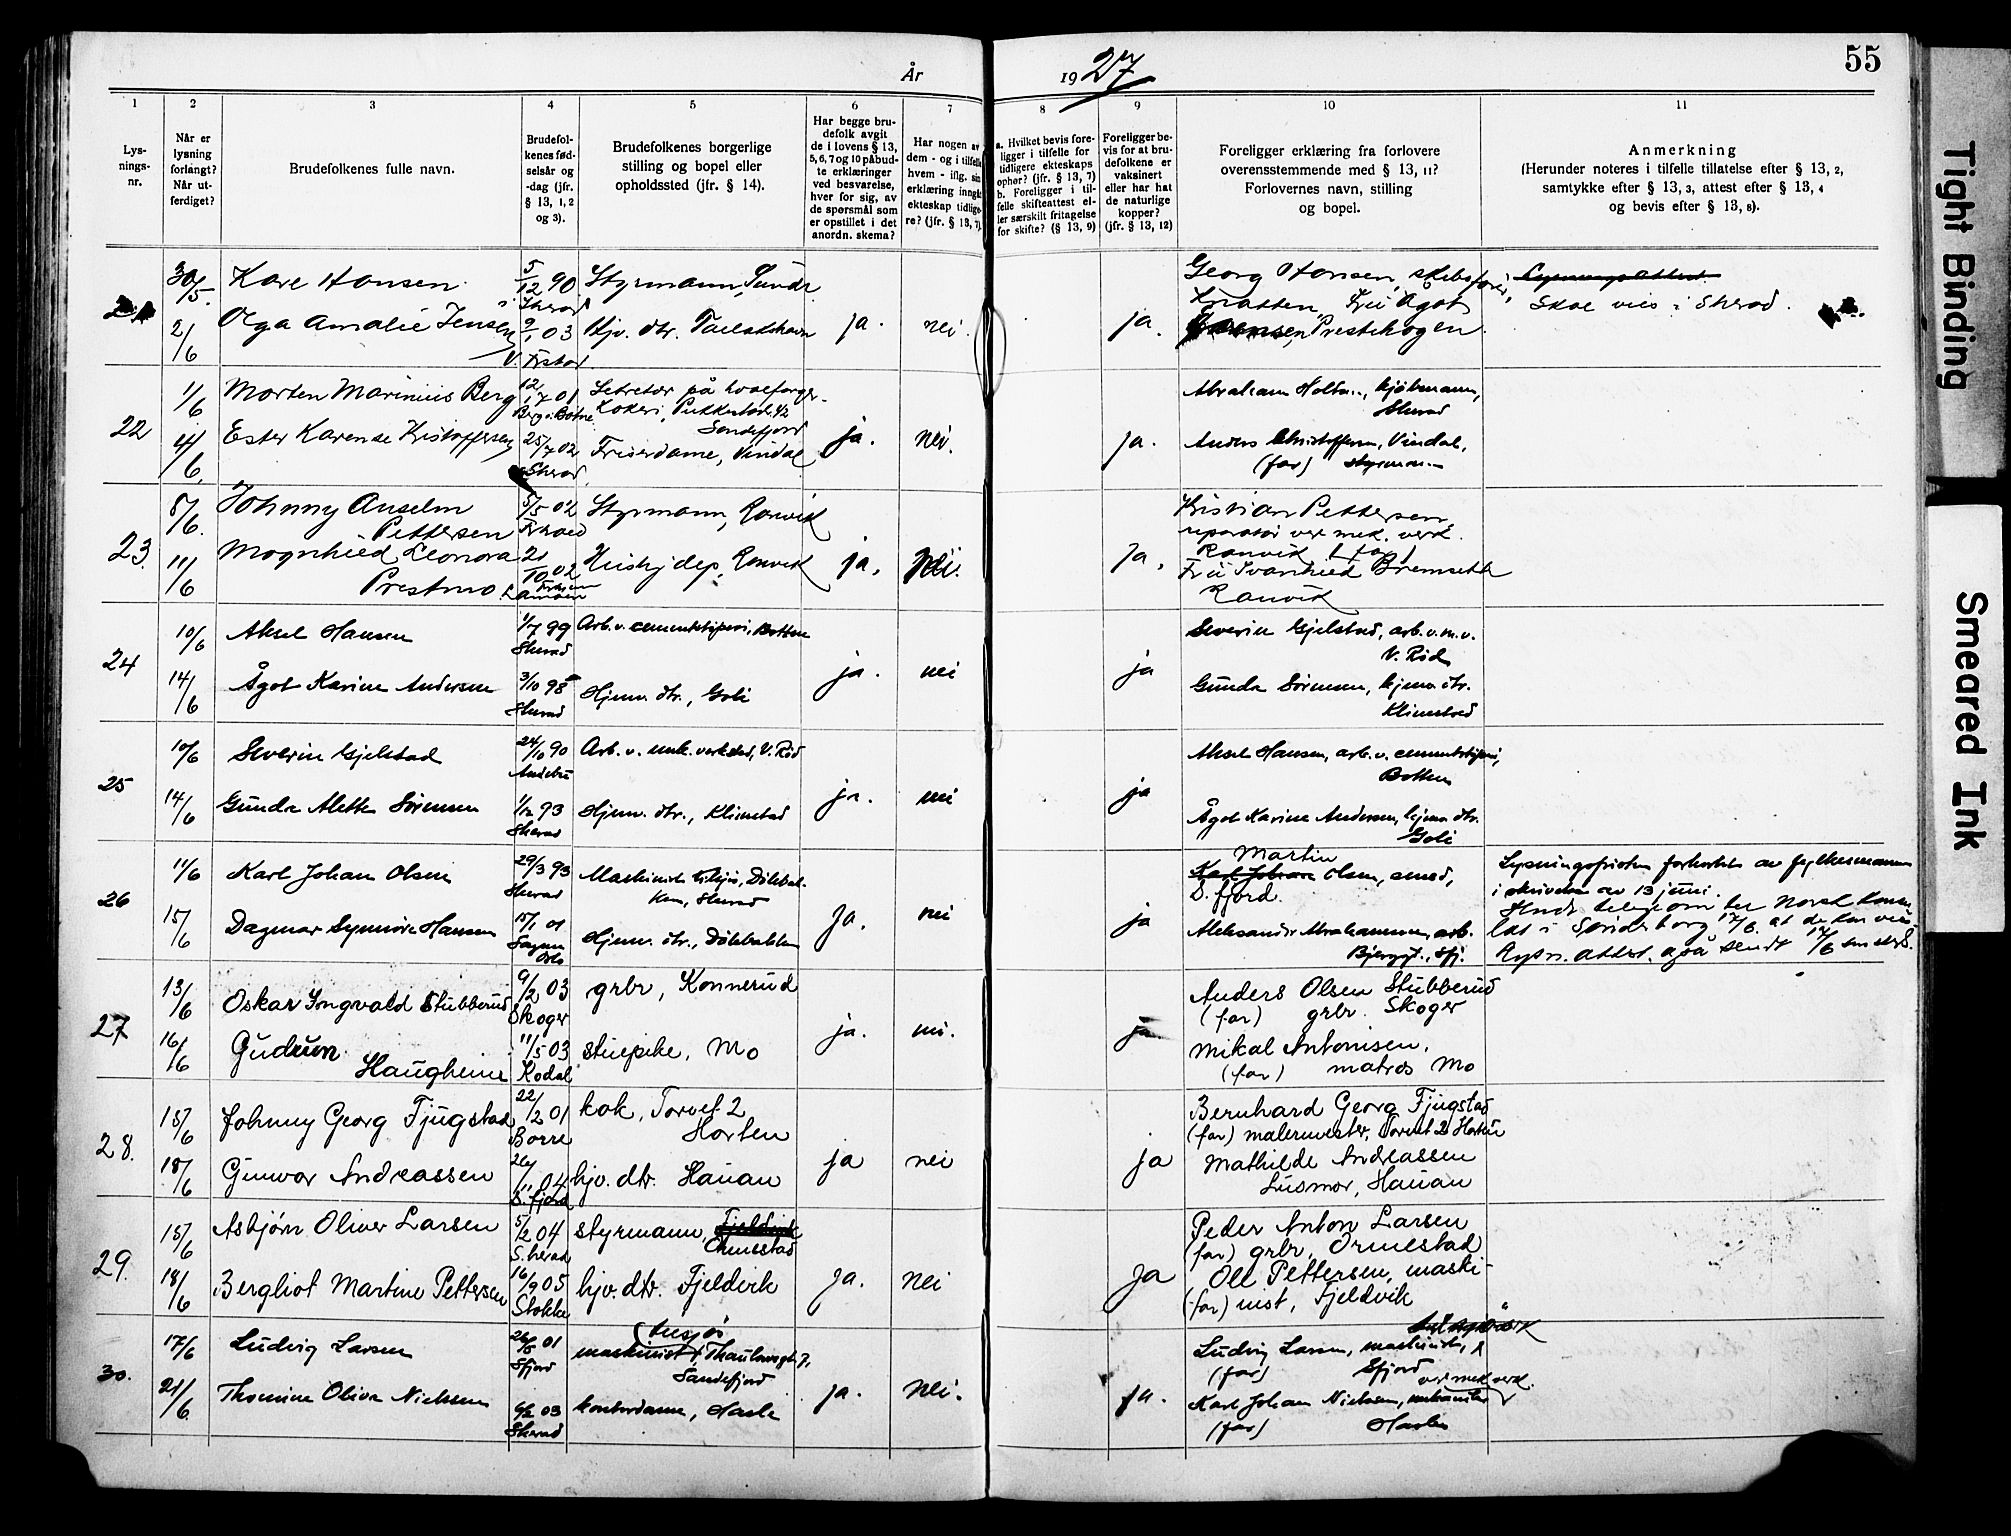 55
År 1927
1 2 3 4 5 6 7 8 9 10 11
Lys-
nings-
nr.
Når er
lysning
forlangt?
Når ut-
ferdiget?
Brudefolkenes fulle navn.
Brudefol-
kenes fød-
selsår og
-dag (jfr.
§ 13, 1, 2
og 3).
Brudefolkenes borgerlige
stilling og bopel eller
opholdssted (jfr. § 14).
Har begge bru-
defolk avgit
de i lovens § 13,
5, 6, 7 og 10 påbud-
te erklæringer
ved besvarelse,
hver for sig, av
de spørsmål som
er opstillet i det
anordn. skema?
Har nogen av
dem - og i tilfelle
hvem - iflg. sin
erklæring inngått
ekteskap tidlige-
re? (jfr. § 13, 7).
a. Hvilket bevis fore-
ligger i tilfelle for
tidligere ekteskaps
ophør? (jfr. § 13, 7)
b. Foreligger i til-
felle skifteattest el-
ler særskilt fritagelse
for skifte? (§ 13, 9)
Foreligger be-
vis for at bru-
defolkene er
vaksinert
eller har hat
de naturlige
kopper?
(jfr. § 13, 12)
Foreligger erklæring fra forlovere
overensstemmende med § 13, 11?
Forlovernes navn, stilling
og bopel.
Anmerkning
(Herunder noteres i tilfelle tillatelse efter § 13, 2,
samtykke efter § 13, 3, attest efter § 13, 4
og bevis efter § 13, 8).
30/5 Kare Hansen 5/12 90 Styrmann,
2/6 Olga Amalie Jensen 9/1 03 Hjv. dtr.
ja. nei. ja.
Georg Hansen, skibsfører,
Knatten, Frü Agot
Prestehagen
Lysningsattest
Skal vies i Sherad.
22
1/6 Morten Marinius Berg 12/7 01 Sekretær på hvalfanger-
kokeri, Pukkestad
Sandefjord
4/6 Ester Karense Kristoffersen 25/7 02 Friserdame, Vindal
Sherad
ja. nei. ja.
Abraham Holtan, kjøbmann,
Sherad
Anders Christoffersen, Vindal,
(far) styrmann
23.
8/6. Johnny Anselm
Pettersen 5/5 02 Styrmann, Ranvik
11/6 Magnhild Leonora
Prestmo 21/10 02 Hushj.delp. Ranvik
ja, nei. Ja,
Kristian Pettersen
reparatør ved mek. verk.
Ranvik (far)
Frü Svanhild Bremseth
Ranvik
24
10/6 Aksel Hansen 1/7 99 Arb. v. cementstøperi, Botten
Sherad
14/6 Ågot Karine Andersen 3/10 98 Hjemv. dtr., Goli
Sherad
ja. nei ja
Severin Gjelstad, arb. v. m. v.
V. Rød
Gunda Sørensen, hjemv. dtr.
Klinestad
25
10/6 Severin Gjelstad 24/10 90 Arb. v. mek. verksted, V. Rød
Andebu
14/6 Gunda Alette Sørensen 1/12 93 Hjemv. dtr., Klinestad
Sherad
ja. nei ja
Aksel Hansen, arb. v. cementstøperi,
Botten
Ågot Karine Andersen, hjemv. dtr.
Goli
26
11/6 Karl Johan Olsen 29/3 93 Maskinist tilsjøs, Dölebak-
ken, Sherad
Sherad
15/6 Dagmar Synnöve Hansen 15/1 01 Hjemv. dtr., Dölebakken
Oslo
Ja. nei ja
Martin
Karl Johan Olsen, smed,
S. fjord.
Aleksander Abrahamsen, arb.
Bjerggt., Sfj.
Lysningsfristen forkortet av fylkesmannen
i skrivelse av 13 juni.
Sendt telegr. om til Norsk konsu-
lat i Sönderborg 17/6. at de kan vies
Lysn. attest. også sendt 17/6
27
13/6 Oskar Yngvald Stubberud 9/2 03 grbr, Konnerud
Skoger
16/6 Gudrun
Haugheim 11/5 03 stuepike, Mo
Kodal
ja. nei. ja.
Anders Olsen Stubberud
(far) grbr. Skoger
Mikal Antonisen,
(far) matros Mo
28.
15/6 Johnny Georg Fjugstad 22/2 01 kok, Torvet 2
Borre Horten
18/6 Gunvor Andreassen 26/11 04 hjv. dtr. Hauan
S. fjord
ja nei ja
Bernhard Georg Fjugstad
(far) malermester, Torvet 2 Horten
Mathilde Andreassen
Husmor, Hauan
29.
15/6 Asbjørn Oliver Larsen 5/2 04 styrmann, Fjeldvik
S. herad Ormestad
18/6 Bergliot Martine Pettersen 16/9 05 hjv. dtr. Fjeldvik
Stokke
Ja. nei Ja
Peder Anton Larsen
(far) grbr, Ormestad
Ole Pettersen, maski-
(far) nist, Fjeldvik
30.
17/6 Ludvig Larsen 26/5 01 (tilsjøs
Sfjord maskinist, Thaulowsgt. 7,
Sandefjord
21/6. Thomine Oliva Nielsen 9/2 03 kontordame, Hasle
Sherad
ja. nei. ja.
Ludvig Larsen, maskinist,
(far) Sfjord
ved mek verk.
Karl Johan Nielsen, mekaniker
(far) Haslen
Tight Binding
Smeared Ink